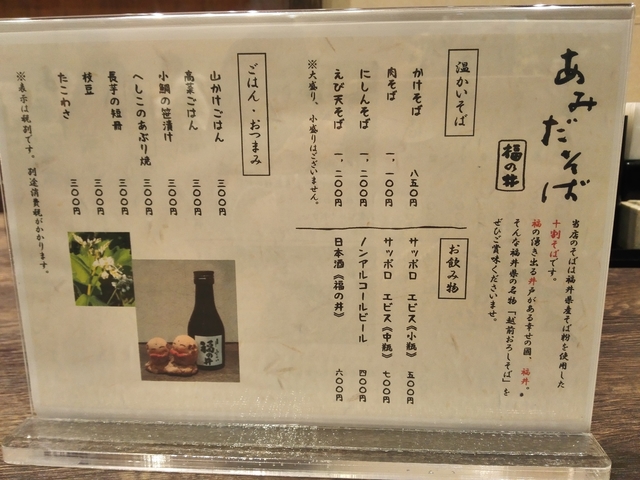 あみだそば
福の井
当店のそばは福井県産そば粉を使用した
十割そばです。
福の湧き出る井戸がある幸せの國、福井。
そんな福井県の名物「越前おろしそば」を
ぜひご賞味くださいませ。
温かいそば
かけそば 八五〇円
肉そば 一、一〇〇円
にしんそば 一、二〇〇円
えび天そば 一、二〇〇円
※大盛り、小盛りはございません。
お飲み物
サッポロ ヱビス《小瓶》 五〇〇円
サッポロ ヱビス《中瓶》 七〇〇円
ノンアルコールビール 四〇〇円
日本酒《福の井》 六〇〇円
ごはん・おつまみ
山かけごはん 三〇〇円
高菜ごはん 三〇〇円
小鯛の笹漬け 三〇〇円
へしこのあぶり焼 三〇〇円
長芋の短冊 三〇〇円
枝豆 三〇〇円
たこわさ 三〇〇円
※表示は税別です。別途消費税がかかります。
福の井